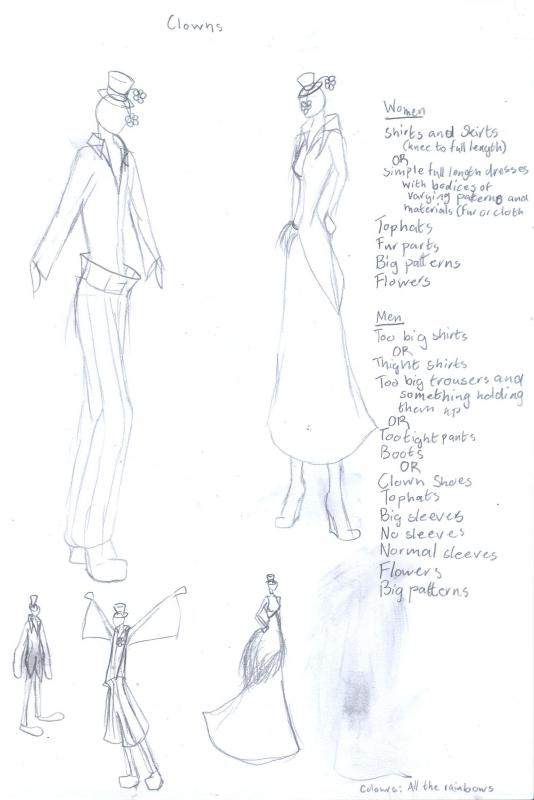 Clowns
Women
Shirts and Skirts
(knee to full length)
OR
Simple full length dresses
with bodices of
varying paterns and
materials (fur or cloth
Tophats
Fur parts
Big patterns
Flowers
Men
Too big shirts
OR
Thight shirts
Too big trousers and
something holding
them up
OR
Too tight pants
Boots
OR
Clown Shoes
Tophats
Big sleeves
No sleeves
Normal sleeves
Flowers
Big patterns
Colours: All the rainbows